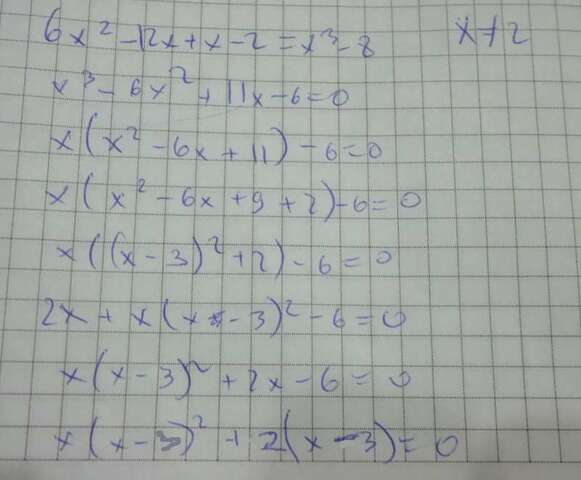 6x² - 12x + x - 2 = x³ - 8    x ≠ 2
x³ - 6x² + 11x - 6 = 0
x(x² - 6x + 11) - 6 = 0
x(x² - 6x + 9 + 2) - 6 = 0
x((x - 3)² + 2) - 6 = 0
2x + x(x - 3)² - 6 = 0
x(x - 3)² + 2x - 6 = 0
x(x - 3)² + 2(x - 3) = 0